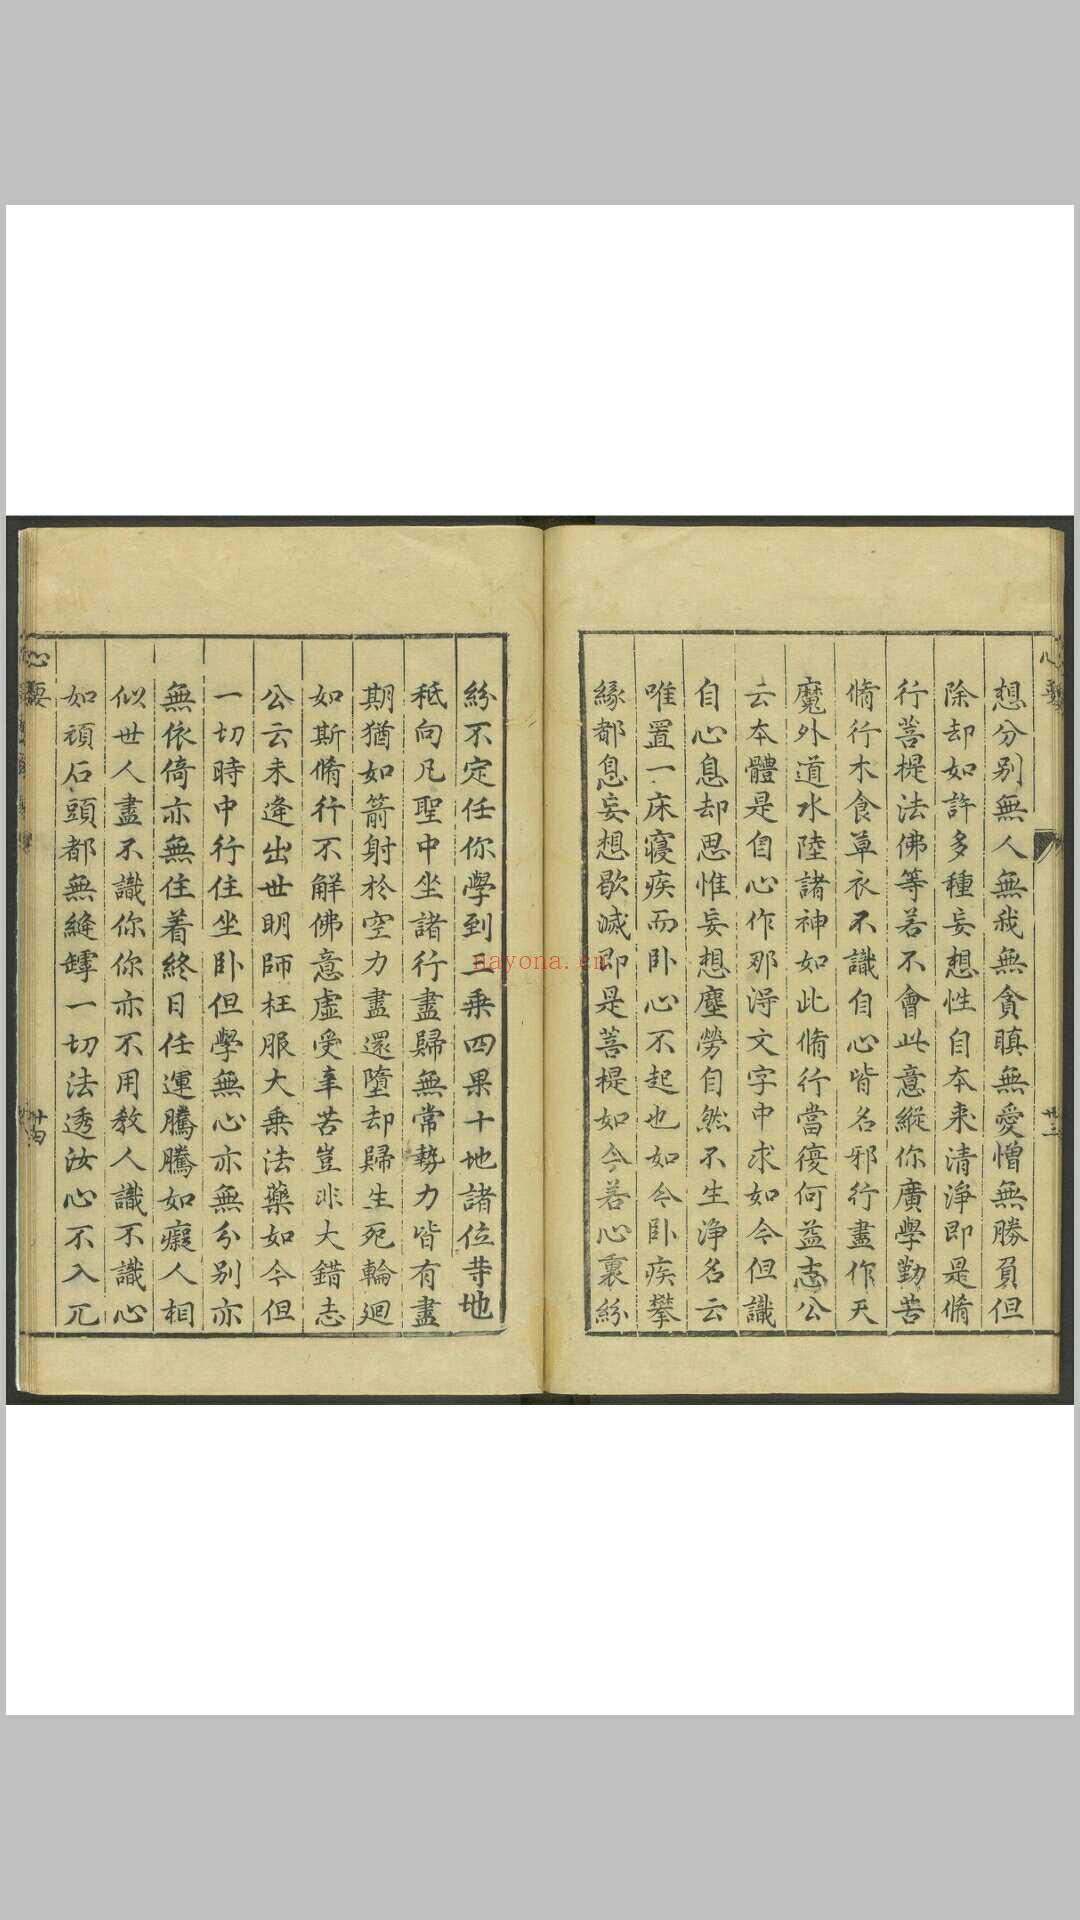 想分別無人無我無貪瞋無愛憎無勝負但
除却如許多種妄想性自本来清淨即是脩
行菩提法佛等若不會此意縱你廣學勤苦
脩行木食草衣不識自心皆名邪行盡作天
魔外道水陸諸神如此脩行當復何益志公
云本體是自心作那淂文字中求如今但識
自心息却思惟妄想塵勞自然不生淨名云
唯置一床寢疾而卧心不起也如今卧疾攀
緣都息妄想歇滅即是菩提如今若心裏紛
廿三
紛不定任你學到三乗四果十地諸位䓁地
秪向凡聖中坐諸行盡歸無常勢力皆有盡
期猶如箭射於空力盡還墮却歸生死輪廻
如斯脩行不解佛意虛受辛苦豈非大錯志
公云未逢出世明師枉服大乗法藥如今但
一切時中行住坐卧但學無心亦無分別亦
無依倚亦無住着終日任運騰騰如癡人相
似世人盡不識你你亦不用教人識不識心
如頑石頭都無縫罅一切法透汝心不入兀
心要
廿四
nayona.cn